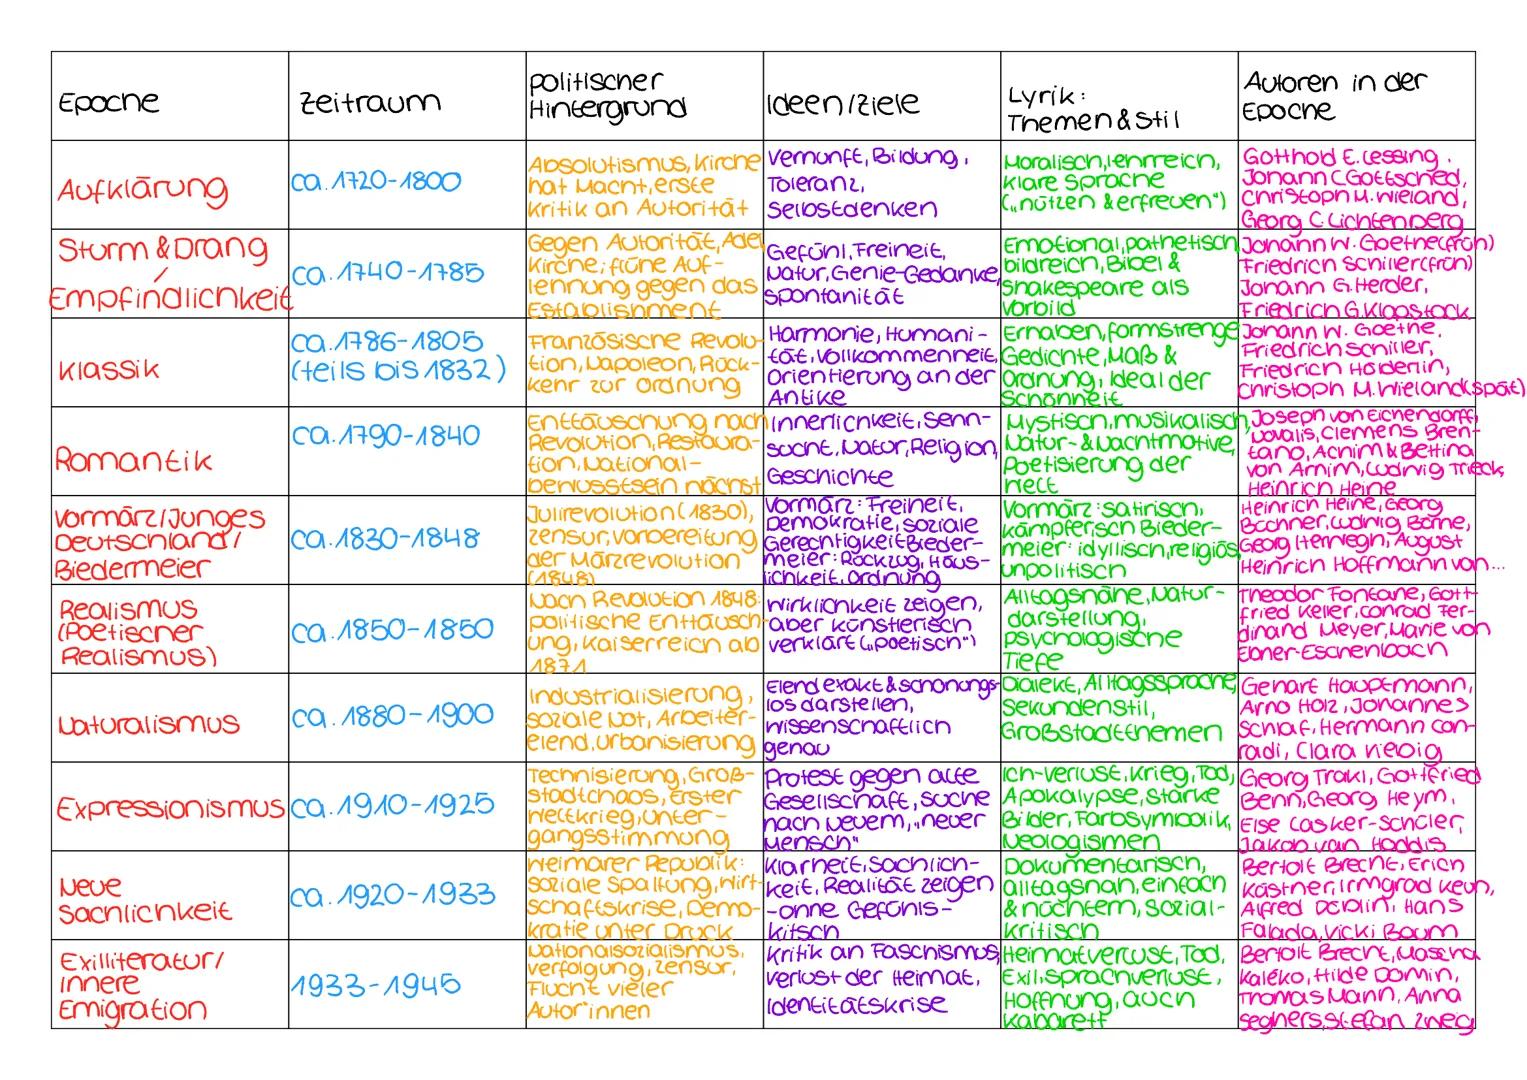 Epoche
Zeitraum
politischer
Hintergrund
Ideen/Ziele
Lyrik:
Themen & Stil
Autoren in der
Epoche
Aufklärung
ca. 1720-1800
Absolutismus, Kirche
hat Macht, erste
Kritik an Autorität
Vernunft, Bildung,
Toleranz,
Selbstdenken
Moralisch, lehrreich,
klare Sprache
(„nützen & erfreuen")
Gotthold E. Lessing.
Johann C. Gottsched,
Christoph M. Wieland,
Georg C. Lichtenberg
Sturm & Drang
/
Empfindlichkeit
ca. 1740-1785
Gegen Autorität, Adel
Kirche; früne Auf-
lehnung gegen das
Establishment
Gefühl, Freiheit,
Natur, Genie-Gedanke,
Spontanität
Emotional, pathetisch
bildreich, Bibel &
Shakespeare als
Vorbild
Johann W. Goethe (früh)
Friedrich Schiller (früh)
Johann G. Herder,
Friedrich G. Klopstock
Klassik
ca. 1786-1805
(teils bis 1832)
Französische Revolu-
tion, Napoleon, Rück-
kehr zur Ordnung
Harmonie, Humani-
tät, Vollkommenheit,
Orientierung an der
Antike
Erhaben, formstrenge
Gedichte, Maß &
Ordnung, Ideal der
Schönheit
Johann W. Goethe,
Friedrich Schiller,
Friedrich Hölderlin,
Christoph M. Wieland (spät)
Romantik
ca. 1790-1840
Enttäuschung nach
Revolution, Restaura-
tion, National-
bewusstsein nächst
Innerlichkeit, Sehn-
sucht, Natur, Religion,
Geschichte
Mystisch, musikalisch,
Natur- & Nachtmotive,
Poetisierung der
Welt
Joseph von Eichendorff,
Novalis, Clemens Bren-
tano, Achnim & Bettina
von Arnim, Ludwig Trieck,
Heinrich Heine
Vormärz/Junges
Deutschland/
Biedermeier
ca. 1830-1848
Julirevolution (1830),
Zensur, Vorbereitung
der Märzrevolution
(1848)
Vormärz: Freiheit,
Demokratie, soziale
Gerechtigkeit Bieder-
meier: Rückzug, Häus-
lichkeit, Ordnung
Vormärz: satirisch,
kämpferisch Bieder-
meier: idyllisch, religiös,
unpolitisch
Heinrich Heine, Georg
Büchner, Ludwig Börne,
Georg Herwegh, August
Heinrich Hoffmann von...
Realismus
(Poetischer
Realismus)
ca. 1850-1850
Nach Revolution 1848:
politische Enttäusch-
ung, Kaiserreich ab
1871
Wirklichkeit zeigen,
aber künstlerisch
verklärt („poetisch")
Alltagsnähe, Natur-
darstellung,
psychologische
Tiefe
Theodor Fontane, Gott-
fried Keller, Conrad Fer-
dinand Meyer, Marie von
Ebner-Eschenbach
Naturalismus
ca. 1880-1900
Industrialisierung,
soziale Not, Arbeiter-
elend, Urbanisierung
Elend exakt & schonungs-
los darstellen,
wissenschaftlich
genau
Dialekt, Alltagssprache,
Sekundenstil,
Großstadtthemen
Gerhart Hauptmann,
Arno Holz, Johannes
Schlaf, Hermann Con-
radi, Clara Viebig
Expressionismus
ca. 1910-1925
Technisierung, Groß-
stadtchaos, Erster
Weltkrieg, Unter-
gangsstimmung
Protest gegen alte
Gesellschaft, Suche
nach Neuem, „neuer
Mensch"
Ich-Verlust, Krieg, Tod,
Apokalypse, Starke
Bilder, Farbsymbolik,
Neologismen
Georg Trakl, Gottfried
Benn, Georg Heym,
Else Lasker-Schüler,
Jakob van Hoddis
Neue
Sachlichkeit
ca. 1920-1933
Weimarer Republik:
soziale Spaltung, Wirt-
schaftskrise, Demo-
kratie unter Druck
Klarheit, Sachlich-
keit, Realität zeigen
-ohne Gefühls-
kitsch
Dokumentarisch,
alltagsnah, einfach
& nüchtern, Sozial-
kritisch
Bertolt Brecht, Erich
Kästner, Irmgrad Keun,
Alfred Döblin, Hans
Falada, Vicki Baum
Exilliteratur/
Innere
Emigration
1933-1945
Nationalsozialismus,
Verfolgung, Zensur,
Flucht vieler
Autor*innen
Kritik an Faschismus,
Verlust der Heimat,
Identitätskrise
Heimatverlust, Tod,
Exil, Sprachverluse,
Hoffnung, auch
Kabarett
Bertolt Brecht, Mascha
Kaléko, Hilde Domin,
Thomas Mann, Anna
Seghers, Stefan Zweig